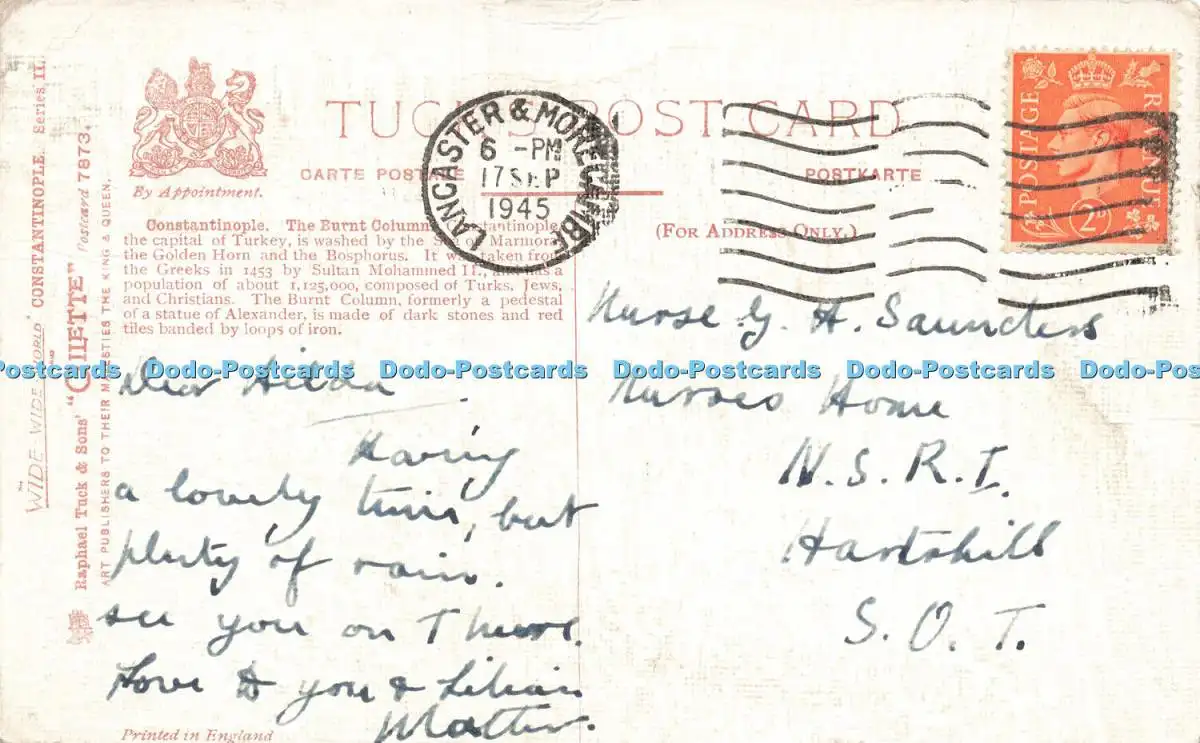 TUCK'S POST CARD
CARTE POSTALE
POSTKARTE
By Appointment.
(FOR ADDRESS ONLY.)
LANCASTER & MORECAMBE
6 - PM
17 SEP
1945
POSTAGE
REVENUE
2D
Constantinople. The Burnt Column. Constantinople,
the capital of Turkey, is washed by the Sea of Marmora,
the Golden Horn and the Bosphorus. It was taken from
the Greeks in 1453 by Sultan Mohammed II., and has a
population of about 1,125,000, composed of Turks, Jews,
and Christians. The Burnt Column, formerly a pedestal
of a statue of Alexander, is made of dark stones and red
tiles banded by loops of iron.
"WIDE-WIDE-WORLD" CONSTANTINOPLE. Series II.
Raphael Tuck & Sons' "OILETTE" Postcard 7873.
ART PUBLISHERS TO THEIR MAJESTIES THE KING & QUEEN.
Dear Hilda
Having
a lovely time, but
plenty of rain.
see you on Thurs.
Love to you & Lilian
Nurse G. H. Saunders
Nurses Home
N. S. R. I.
Hartshill
S. O. T.
Printed in England
Postcards Dodo-Postcards Dodo-Postcards Dodo-Postcards Dodo-Postcards Dodo-Postcards Dodo-Post